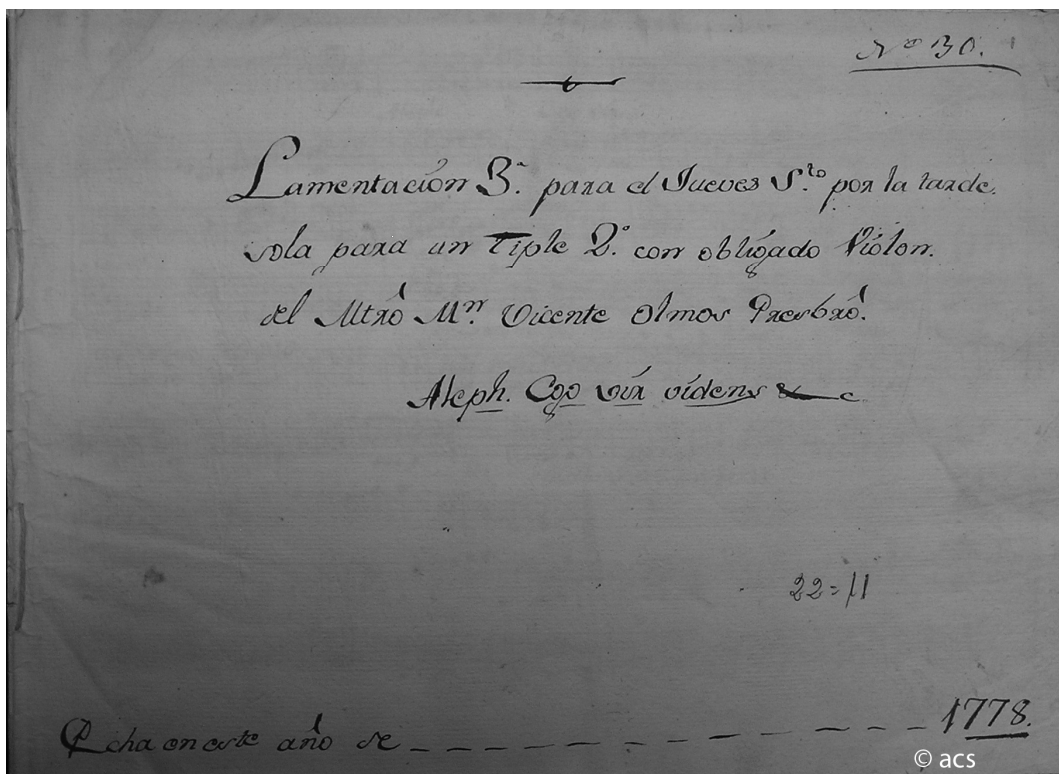 Nº 30.
Lamentacion 3ª. para el Jueves S.to por la tarde.
sola para un Tiple 2º. con obligado Violon.
del Mtrô Mn. Vicente Olmos Presbrô.
Aleph. Ego vir videns & c
22=11
Echa en este año de 1778.
© acs